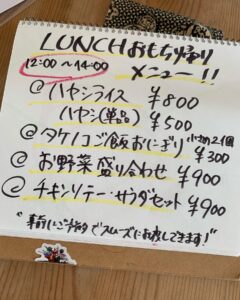 LUNCHおもち帰り
12:00～14:00
メニュー!!
@ハヤシライス ¥800
ハヤシ(単品) ¥500
@タケノコご飯おにぎり 小さめ2個
¥300
@お野菜盛り合わせ ¥900
@チキンソテーサラダセット ¥900
"事前にご予約でスムーズにお渡しできます!"